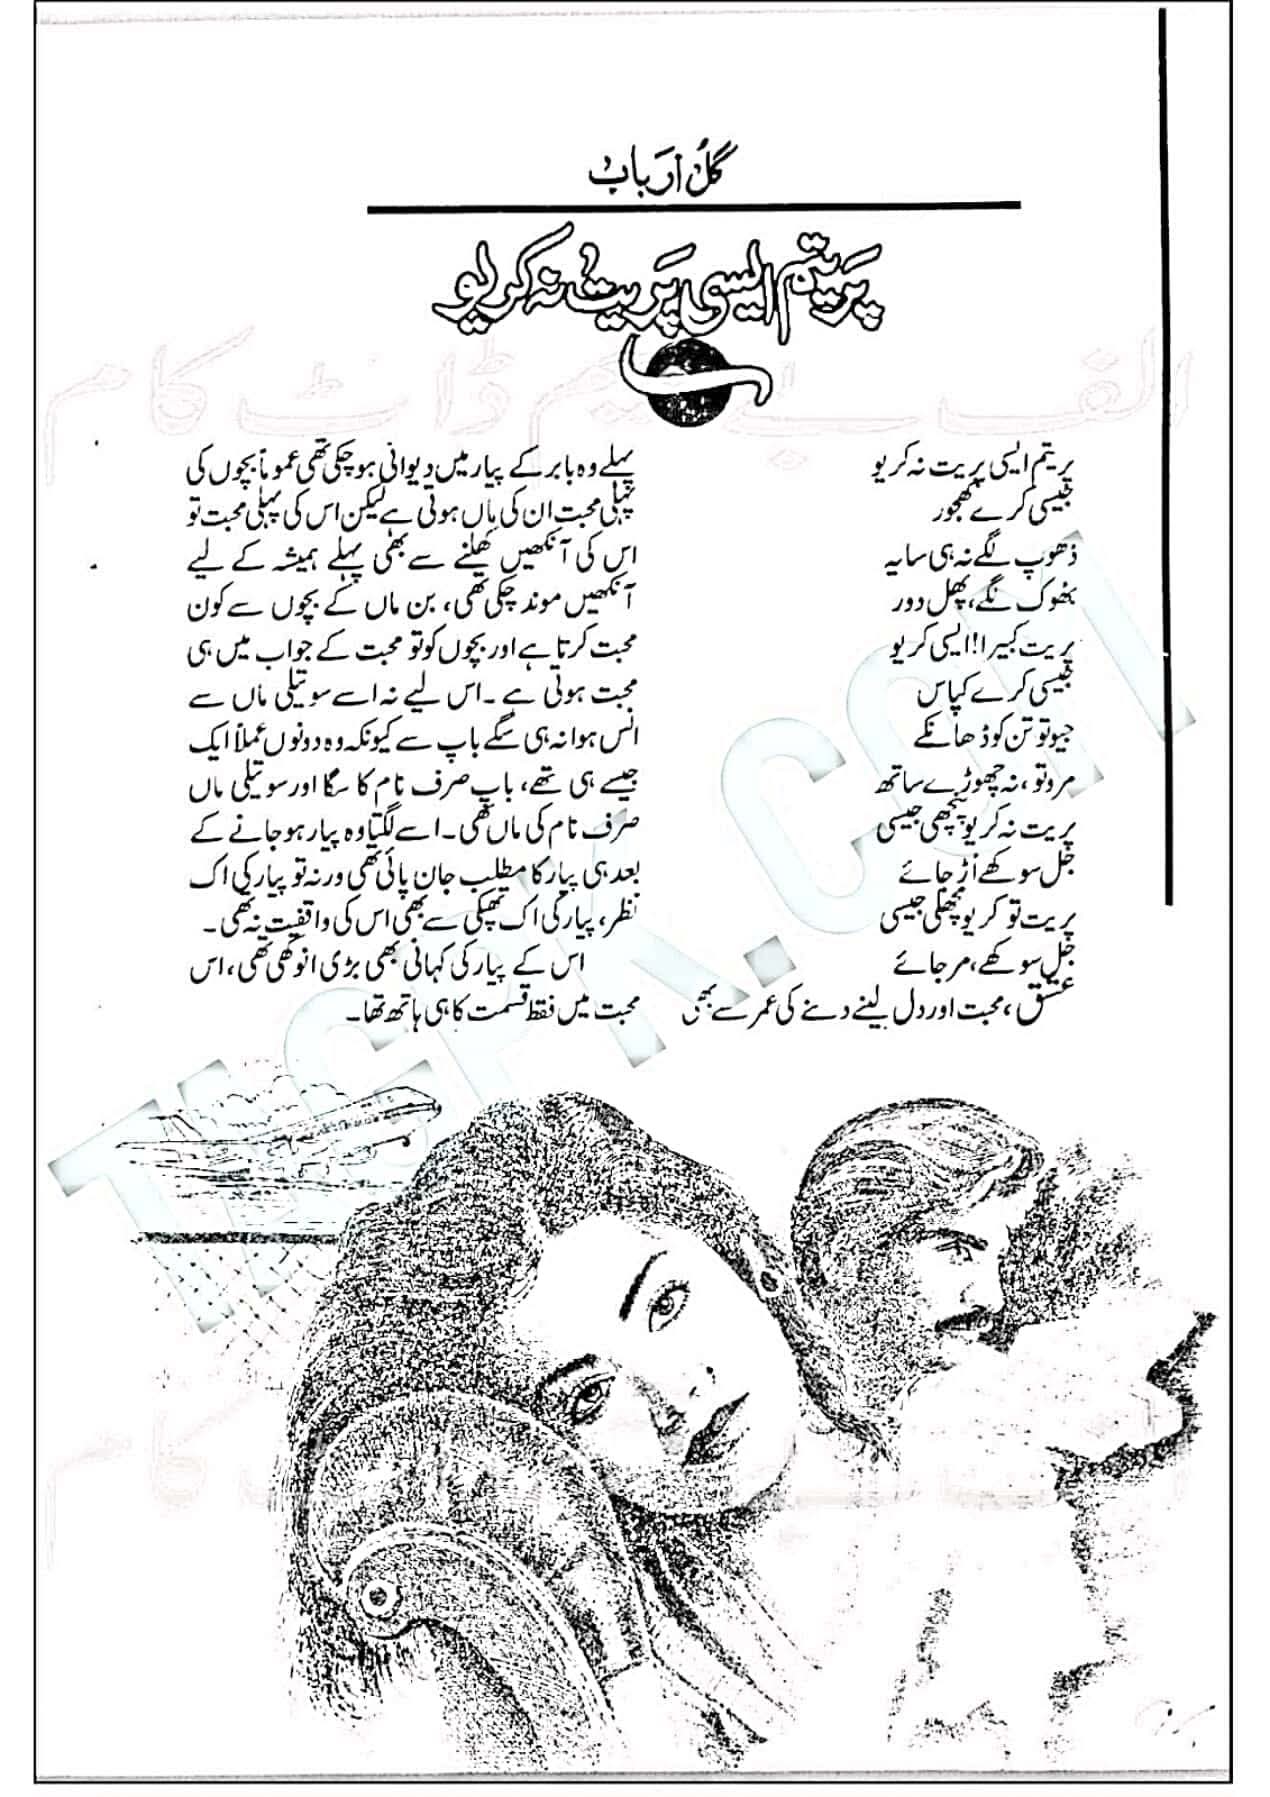 گل ارباب
پریتم ایسی پریت نہ کریو
پریتم ایسی پریت نہ کریو
جیسی کرے کھجور
دھوپ لگے نہ ہی سایہ
بھوک لگے، پھل دور
پریت کبیرا! ایسی کریو
جیسی کرے کپاس
جیو تو تن کو ڈھانکے
مرو تو، نہ چھوڑے ساتھ
پریت نہ کریو پنچھی جیسی
جل سوکھے اُڑ جائے
پریت تو کریو مچھلی جیسی
جل سوکھے، مر جائے
عشق، محبت اور دل لینے دینے کی عمر سے بھی
پہلے وہ بابر کے پیار میں دیوانی ہو چکی تھی عموماً بچوں کی
پہلی محبت ان کی ماں ہوتی ہے لیکن اس کی پہلی محبت تو
اس کی آنکھیں کھلنے سے بھی پہلے ہمیشہ کے لیے
آنکھیں موند چکی تھی، بن ماں کے بچوں سے کون
محبت کرتا ہے اور بچوں کو تو محبت کے جواب میں ہی
محبت ہوتی ہے۔ اس لیے نہ اسے سوتیلی ماں سے
انس ہوا نہ ہی سگے باپ سے کیونکہ وہ دونوں عملاً ایک
جیسے ہی تھے، باپ صرف نام کا سگا اور سوتیلی ماں
صرف نام کی ماں تھی۔ اسے لگتا وہ پیار ہو جانے کے
بعد ہی پیار کا مطلب جان پائی تھی ورنہ تو پیار کی اک
نظر، پیار کی اک تھپکی سے بھی اس کی واقفیت نہ تھی۔
اس کے پیار کی کہانی بھی بڑی انوکھی تھی، اس
محبت میں فقط قسمت کا ہی ہاتھ تھا۔